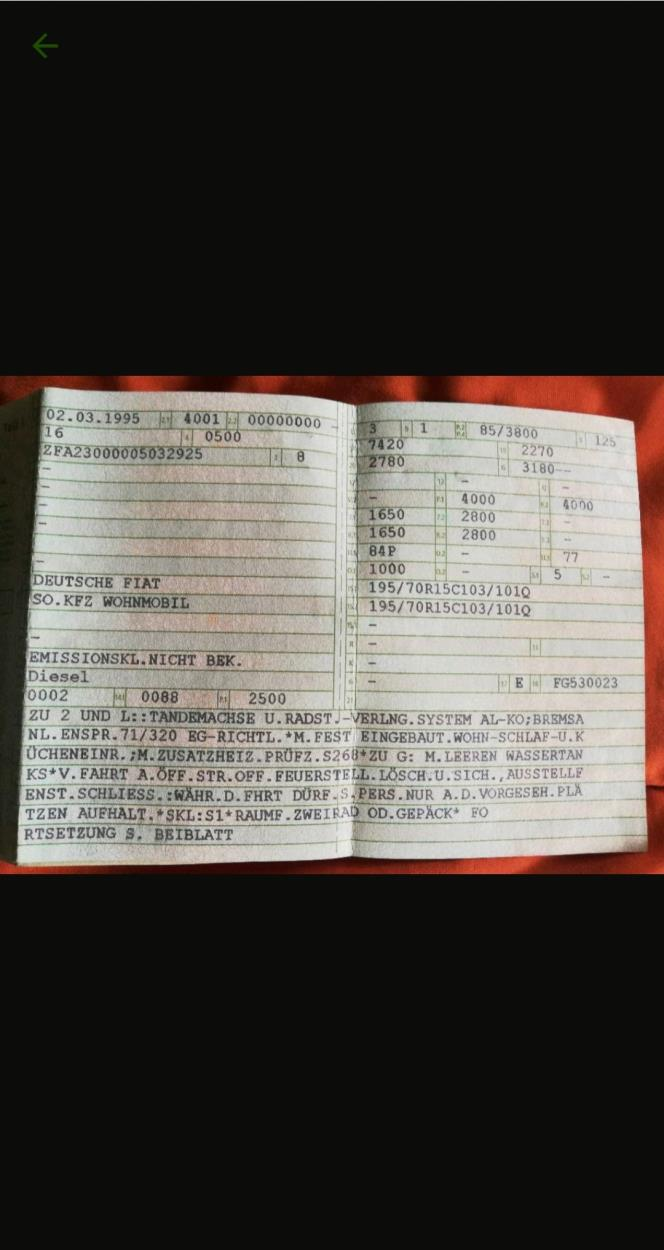 02.03.1995 4001 00000000 -
16 0500
ZFA23000005032925 8
-
-
-
-
-
DEUTSCHE FIAT
SO.KFZ WOHNMOBIL
-
EMISSIONSKL.NICHT BEK.
Diesel
0002 0088 2500
3 1 85/3800 125
7420 2270
2780 3180--
- -
- 4000 4000
1650 2800 -
1650 2800 -
84P - 77
1000 - 5 -
195/70R15C103/101Q
195/70R15C103/101Q
-
-
-
- E FG530023
ZU 2 UND L::TANDEMACHSE U.RADST.-VERLNG.SYSTEM AL-KO;BREMSA
NL.ENSPR.71/320 EG-RICHTL.*M.FEST EINGEBAUT.WOHN-SCHLAF-U.K
ÜCHENEINR.;M.ZUSATZHEIZ.PRÜFZ.S268*ZU G: M.LEEREN WASSERTAN
KS*V.FAHRT A.ÖFF.STR.OFF.FEUERSTELL.LÖSCH.U.SICH.,AUSSTELLF
ENST.SCHLIESS.:WÄHR.D.FHRT DÜRF.S.PERS.NUR A.D.VORGESEH.PLÄ
TZEN AUFHALT.*SKL:S1*RAUMF.ZWEIRAD OD.GEPÄCK* FO
RTSETZUNG S. BEIBLATT